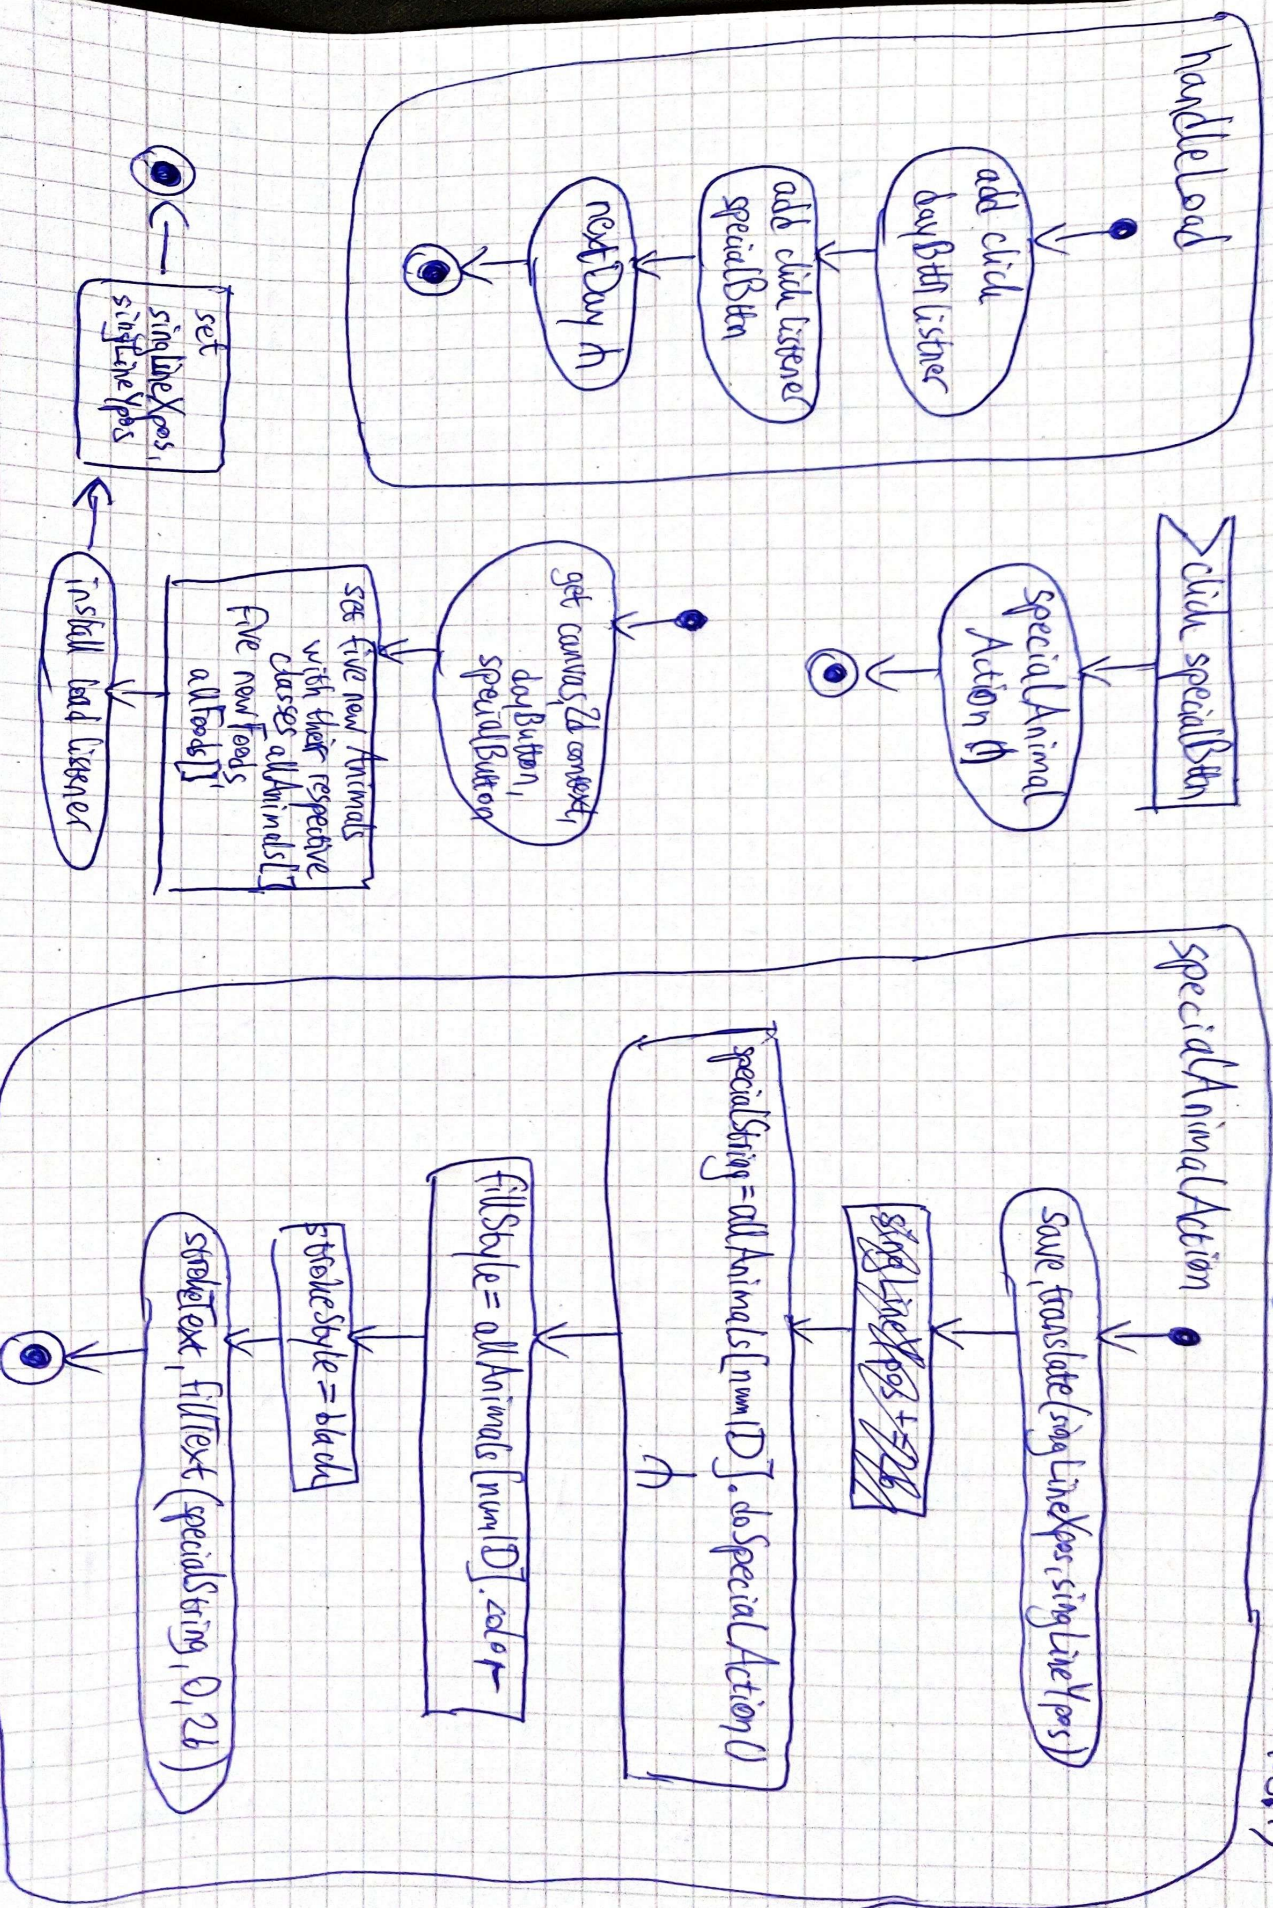 handleLoad
add click
dayBttn listner
add click listener
specialBttn
nextDay
click specialBttn
specialAnimal
Action
get canvas, 2d context,
dayButton,
specialButton
set five new Animals
with their respective
classes allAnimals[]
five new Foods
allFoods[]
install load listener
set
singLineXpos,
singLineYpos
specialAnimalAction
save, translate(singLineXpos, singLineYpos)
singLineXpos +=26
specialString=allAnimals[numID].doSpecialAction()
fillStyle= allAnimals[numID].color
strokeStyle=black
strokeText, fillText(specialString, 0, 26)